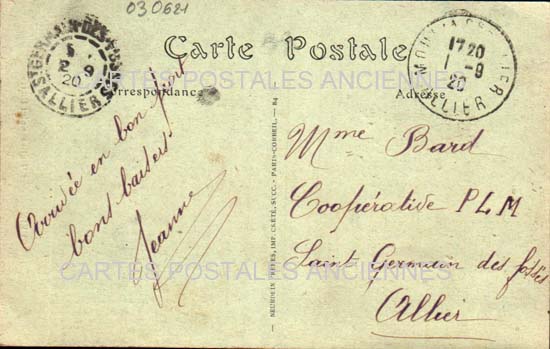 030621
ST GERMAIN-DES-FOSSÉS
5
2 - 9
20
ALLIER
Carte Postale
CARTES POSTALES ANCIENNES
Correspondance
Adresse
17 20
1 - 9
20
ALLIER
Arrivée en bon port
bons baisers
Jeanne
NEURDEIN FRÈRES, IMP. CRÉTÉ, SUCC. - PARIS-CORBEIL. - 84
Mme Bard
Coopérative PLM
Saint Germain des fossés
Allier
CARTES POSTALES ANCIENNES